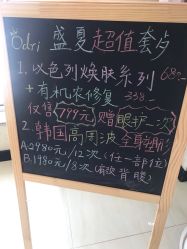 Ödri 盛夏超值套餐
1、以色列焕肤系列 682
+有机农修复 338
仅售799元 赠眼护一次
2、韩国高周波全身塑形
A:2980元/12次(任一部位)
B:1980元/8次(肩颈 背 腹)